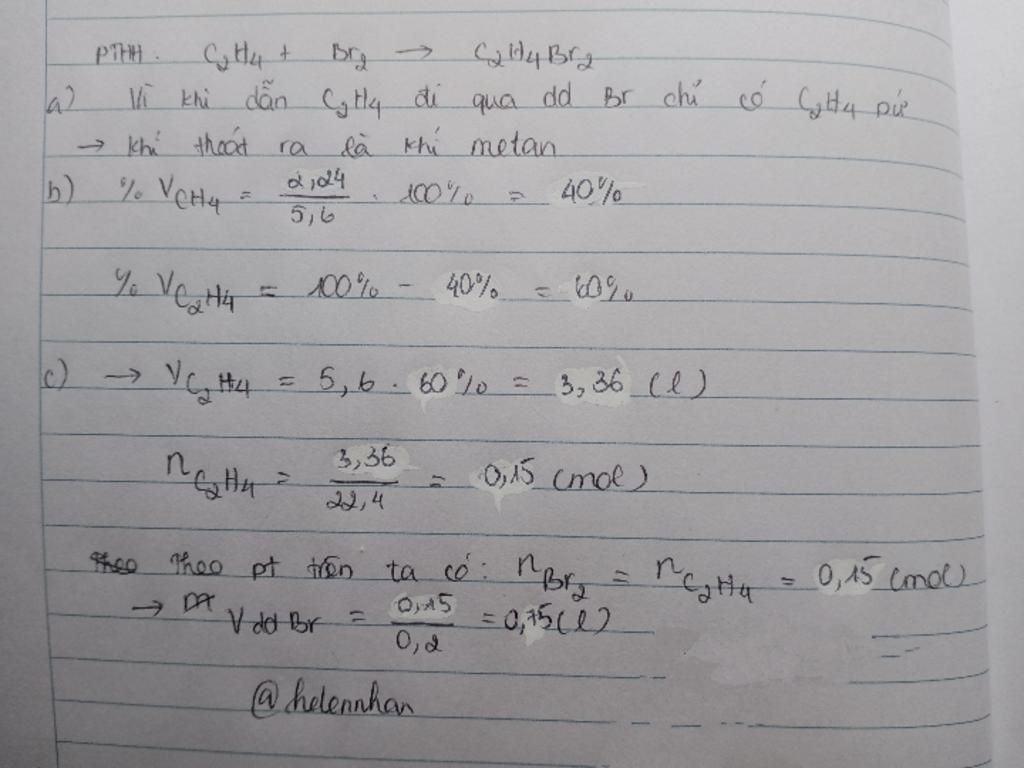 PTHH. C₂H₄ + Br₂ → C₂H₄Br₂
a) Vì khi dẫn C₂H₄ đi qua dd Br chỉ có C₂H₄ pứ
→ khí thoát ra là khí metan
b) % V_CH₄ = 2,24 / 5,6 . 100% = 40%
% V_C₂H₄ = 100% - 40% = 60%
c) → V_C₂H₄ = 5,6 . 60% = 3,36 (l)
n_C₂H₄ = 3,36 / 22,4 = 0,15 (mol)
theo pt trên ta có: n_Br₂ = n_C₂H₄ = 0,15 (mol)
→ V dd Br = 0,15 / 0,2 = 0,75 (l)
@helennhan